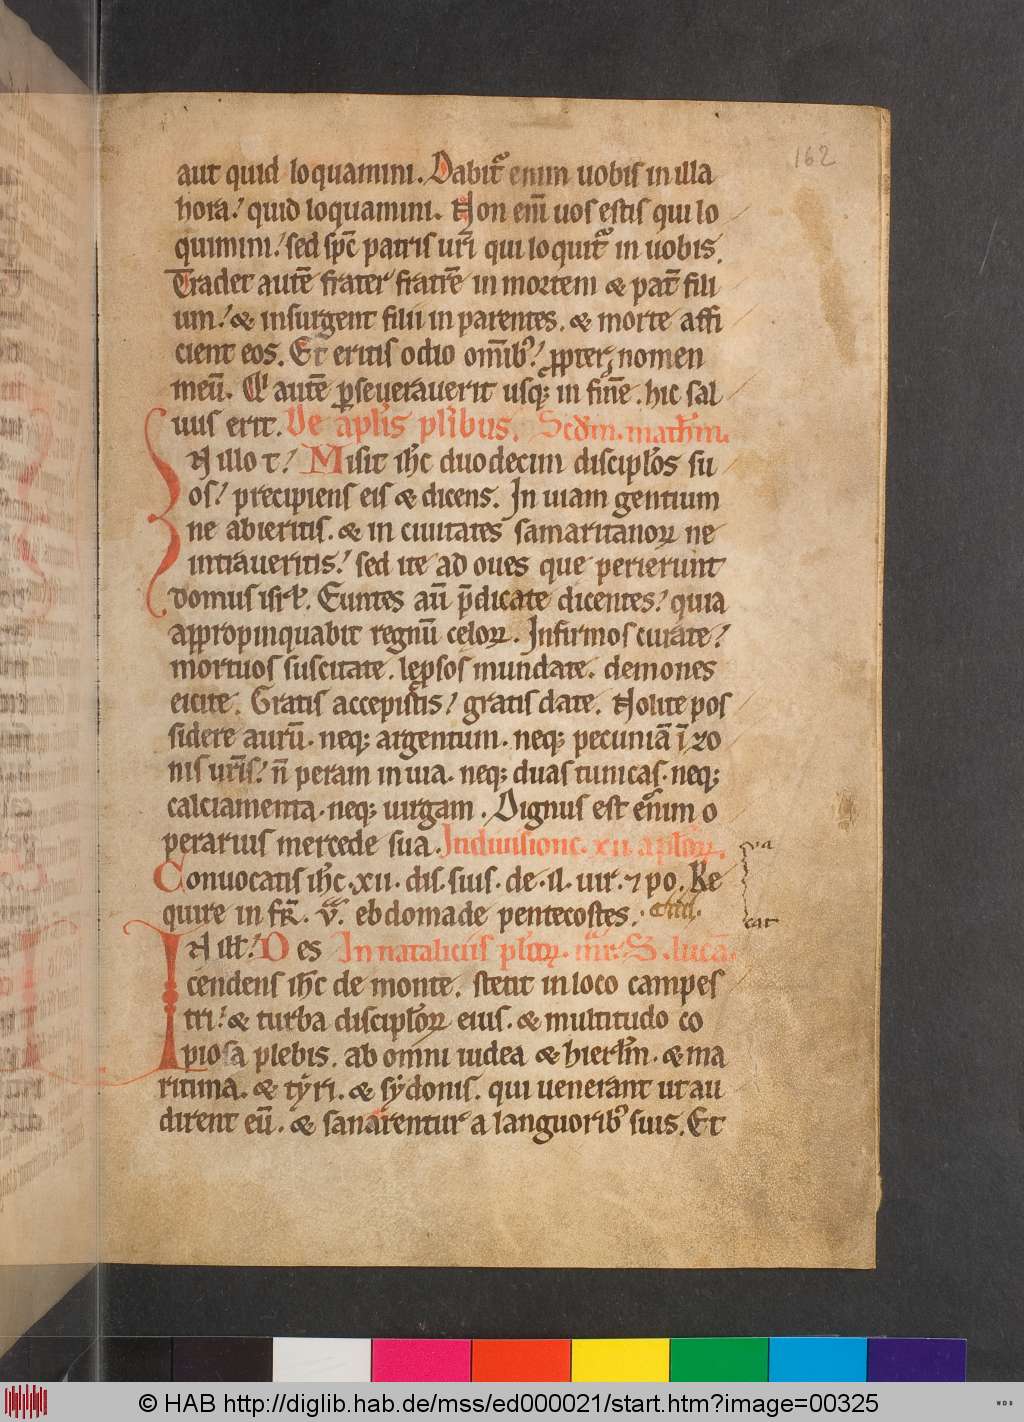 162
aut quid loquamini. Dabit᷑ enim uobis in illa
hora! quid loquamini. Non eni̅ uos estis qui lo
quimini! sed sp̅c patris ur̅i qui loquit᷑ in uobis.
Tradet aute̅ frater fratre̅ in mortem & pat̅ fili
um! & insurgent filii in parentes. & morte affi
cient eos. Et eritis odio omib᷒! ꝓpter nomen
meu̅. Qi aute̅ ꝑseuerauerit usq; in fine̅. hic sal
uus erit. De apl̅is pl̅ibus. Scd̅m. math̅m.
IN illo t! Misit ih̅c duodecim discipl̅os su
os! precipiens eis & dicens. In uiam gentium
ne abieritis. & in ciuitates samaritanoꝝ ne
intraueritis! sed ite ad oues que perierunt
domus isrl̅. Euntes au̅ p̅dicate dicentes! quia
appropinquabit regnu̅ celoꝝ. Infirmos curate!
mortuos suscitate. leprosos mundate. demones
eicite. Gratis accepistis! gratis date. Nolite pos
sidere auru̅. neq; argentum. neq; pecunia̅ i̅ zo
nis ur̅is! n̅ peram in uia. neq; duas tunicas. neq;
calciamenta. neq; uirgam. Dignus est enim o
perarius mercede sua. In diuisione. xii apl̅oꝝ.
Conuocatis ih̅c. xii. dis. suis. de. il. uir. ⁊ po. Re
quire in fr̅. v̅. ebdomade pentecostes.
IN ill̅! Des In nataliciis pl̅ioꝝ. mr̅. S. luca̅
cendens ih̅c de monte. stetit in loco campes
tri! & turba discipl̅oꝝ eius. & multitudo co
piosa plebis. ab omni iudea & hierl̅m. & ma
ritima. & tẏri. & sẏdonis. qui uenerant ut au
dirent eu̅. & sanarentur a languorib᷒ suis. Et
© HAB http://diglib.hab.de/mss/ed000021/start.htm?image=00325